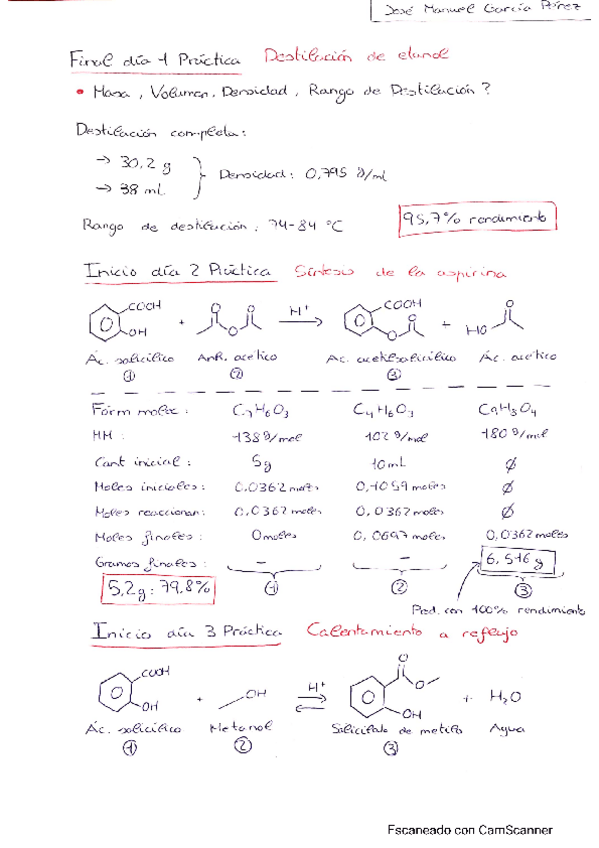 José Manuel García Pérez
Final día 1 Práctica Destilación de etanol
• Masa, Volumen, Densidad, Rango de Destilación?
Destilación completa:
→ 30,2 g
→ 38 mL
Densidad: 0,795 g/ml
Rango de destilación: 74-84 °C
95,7% rendimiento
Inicio día 2 Práctica Síntesis de la aspirina
COOH OH + O O O H+ COOH O O + HO O
Ác. salicílico Anh. acético Ac. acetilsalicílico Ác. acético
① ② ③
Fórm molec: C7H6O3 C4H6O3 C9H8O4
MM: 138 g/mol 102 g/mol 180 g/mol
Cant inicial: 5g 10mL ∅
Moles iniciales: 0,0362 moles 0,1059 moles ∅
Moles reaccionan: 0,0362 moles 0,0362 moles ∅
Moles finales: 0 moles 0,0697 moles 0,0362 moles
Gramos finales: — — 6,516 g
5,2g: 79,8% ① ② ③
Prod. con 100% rendimiento
Inicio día 3 Práctica Calentamiento a reflujo
COOH OH + OH H+ O O OH + H2O
Ác. salicílico Metanol Salicilato de metilo Agua
① ② ③
Escaneado con CamScanner